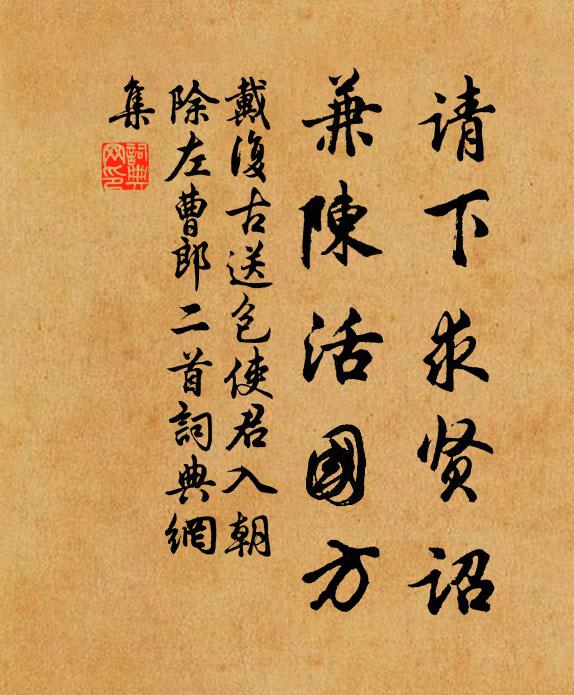 请下求贤诏
兼陳活國方
戴復古送包使君入朝
除左曹郎二首詞典網
集
詞典网印